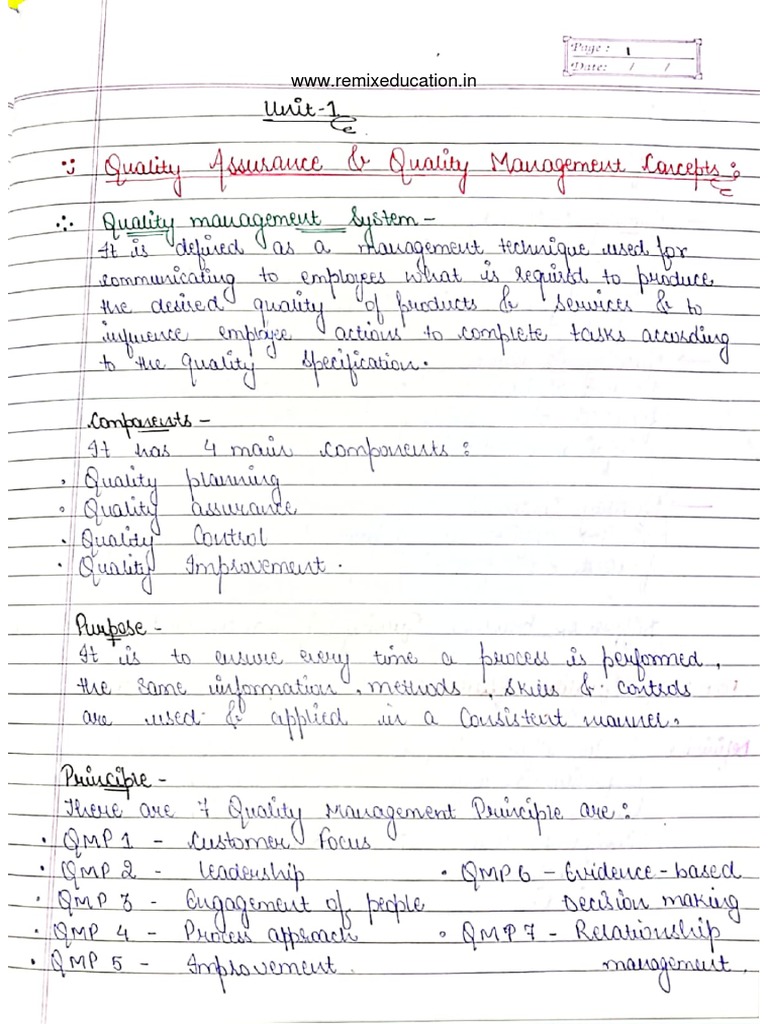 Page: 1
Date: / /
www.remixeducation.in
Unit-1
Quality Assurance & Quality Management Concepts :
Quality management System -
It is defined as a management technique used for
communicating to employees what is required to produce
the desired quality of products & services & to
influence employee actions to complete tasks according
to the quality specification.
Components -
It has 4 main components :
• Quality planning
• Quality assurance
• Quality Control
• Quality Improvement .
Purpose -
It is to ensure every time a process is performed,
the same information, methods, skills & controls
are used & applied in a consistent manner.
Principle -
There are 7 Quality Management Principle are :
• QMP 1 - Customer Focus
• QMP 2 - Leadership
• QMP 3 - Engagement of people
• QMP 4 - Process approach
• QMP 5 - Improvement .
• QMP 6 - Evidence-based
Decision making
• QMP 7 - Relationship
management .